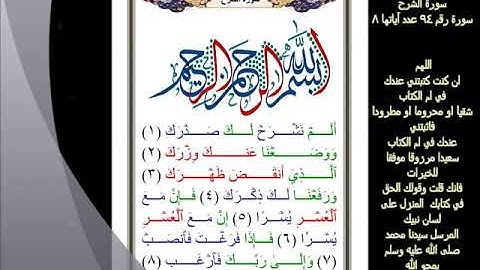 سورة الشرح
بسم الله الرحمن الرحيم
أَلَمْ نَشْرَحْ لَكَ صَدْرَكَ (١)
وَوَضَعْنَا عَنكَ وِزْرَكَ (٢)
ٱلَّذِيٓ أَنقَضَ ظَهْرَكَ (٣)
وَرَفَعْنَا لَكَ ذِكْرَكَ (٤) فَإِنَّ مَعَ
ٱلْعُسْرِ يُسْرًا (٥) إِنَّ مَعَ ٱلْعُسْرِ
يُسْرًا (٦) فَإِذَا فَرَغْتَ فَٱنصَبْ
(٧) وَإِلَىٰ رَبِّكَ فَٱرْغَب (٨)
سورة الشرح
سورة رقم ٩٤ عدد آياتها ٨
اللهم
ان كنت كتبتني عندك
في ام الكتاب
شقيا او محروما او مطرودا
فاثبتني
عندك في ام الكتاب
سعيدا مرزوقا موفقا
للخيرات
فانك قلت وقولك الحق
في كتابك المنزل على
لسان نبيك
المرسل سيدنا محمد
صلى الله عليه وسلم
يمحو الله